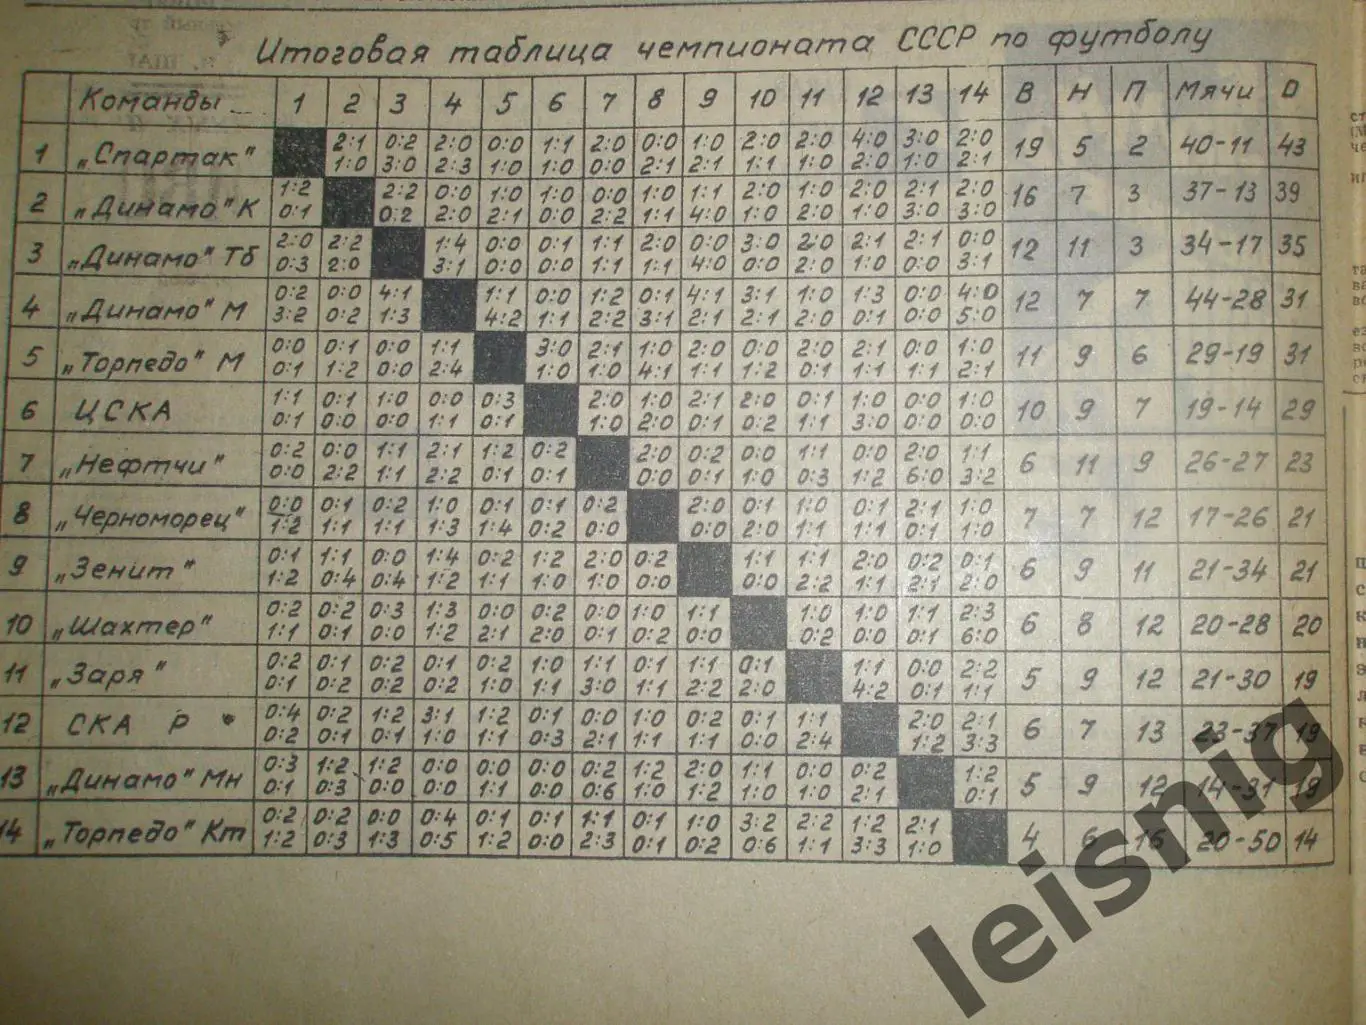 Итоговая таблица чемпионата СССР по футболу
Команды 1 2 3 4 5 6 7 8 9 10 11 12 13 14 В Н П Мячи О
1 „Спартак" 2:1 0:2 2:0 0:0 1:1 2:0 0:0 1:0 2:0 2:0 4:0 3:0 2:0 19 5 2 40-11 43
1:0 3:0 2:3 1:0 1:0 0:0 2:1 2:1 1:1 1:0 2:0 1:0 2:1
2 „Динамо" К 1:2 2:2 0:0 1:0 1:0 0:0 1:0 1:1 2:0 1:0 2:0 2:1 2:0 16 7 3 37-13 39
0:1 0:2 2:0 2:1 0:0 2:2 1:1 4:0 1:0 2:0 1:0 3:0 3:0
3 „Динамо" Тб 2:0 2:2 1:4 0:0 0:1 1:1 2:0 0:0 3:0 2:0 2:1 2:1 0:0 12 11 3 34-17 35
0:3 2:0 3:1 0:0 0:0 1:1 1:1 4:0 0:0 2:0 1:0 0:0 3:1
4 „Динамо" М 0:2 0:0 4:1 1:1 0:0 1:2 0:1 4:1 3:1 1:0 1:3 0:0 4:0 12 7 7 44-28 31
3:2 0:2 1:3 4:2 1:1 2:2 3:1 2:1 2:1 2:0 0:1 0:0 5:0
5 „Торпедо" М 0:0 0:1 0:0 1:1 3:0 2:1 1:0 2:0 0:0 2:0 2:1 0:0 1:0 11 9 6 29-19 31
0:1 1:2 0:0 2:4 1:0 1:0 4:1 1:1 1:2 0:1 1:1 1:1 2:1
6 ЦСКА 1:1 0:1 1:0 0:0 0:3 2:0 1:0 2:1 2:0 0:1 1:0 0:0 1:0 10 9 7 19-14 29
0:1 0:0 0:0 1:1 0:1 1:0 2:0 0:1 0:2 1:1 3:0 0:0 0:0
7 „Нефтчи" 0:2 0:0 1:1 2:1 1:2 0:2 2:0 0:2 0:0 1:1 0:0 2:0 1:1 6 11 9 26-27 23
0:0 2:2 1:1 2:2 0:1 0:1 0:0 0:1 1:0 0:3 1:2 6:0 3:2
8 „Черноморец" 0:0 0:1 0:2 1:0 0:1 0:1 0:2 2:0 0:1 1:0 0:1 2:1 1:0 7 7 12 17-26 21
1:2 1:1 1:1 1:3 1:4 0:2 0:0 0:0 2:0 1:1 1:1 0:1 1:0
9 „Зенит" 0:1 1:1 0:0 1:4 0:2 1:2 2:0 0:2 1:1 1:1 2:0 0:2 0:1 6 9 11 21-34 21
1:2 0:4 0:4 1:2 1:1 1:0 1:0 0:0 0:0 2:2 1:1 2:1 2:0
10 „Шахтер" 0:2 0:2 0:3 1:3 0:0 0:2 0:0 1:0 1:1 1:0 1:0 1:1 2:3 6 8 12 20-28 20
1:1 0:1 0:0 1:2 2:1 2:0 0:1 0:2 0:0 0:2 0:0 0:1 6:0
11 „Заря" 0:2 0:1 0:2 0:1 0:2 1:0 1:1 0:1 1:1 0:1 1:1 0:0 2:2 5 9 12 21-30 19
0:1 0:2 0:2 0:2 1:0 1:1 3:0 1:1 2:2 2:0 4:2 0:1 1:1
12 СКА Р 0:4 0:2 1:2 3:1 1:2 0:1 0:0 1:0 0:2 0:1 1:1 2:0 2:1 6 7 13 23-37 19
0:2 0:1 0:1 1:0 1:1 0:3 2:1 1:1 1:1 0:0 2:4 1:2 3:3
13 „Динамо" Мн 0:3 1:2 1:2 0:0 0:0 0:0 0:2 1:2 2:0 1:1 0:0 0:2 1:2 5 9 12 14-31 19
0:1 0:3 0:0 0:0 1:1 0:0 0:6 1:0 1:2 1:0 1:0 2:1 0:1
14 „Торпедо" Кт 0:2 0:2 0:0 0:4 0:1 0:1 1:1 0:1 1:0 3:2 2:2 1:2 2:1 4 6 16 20-50 14
1:2 0:3 1:3 0:5 1:2 0:0 2:3 0:1 0:2 0:6 1:1 3:3 1:0
leismig